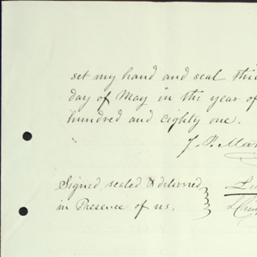 set my hand and seal this
day of May in the year of
hundred and eighty one.
J. P. Mor
Signed sealed & delivered
in Presence of us.